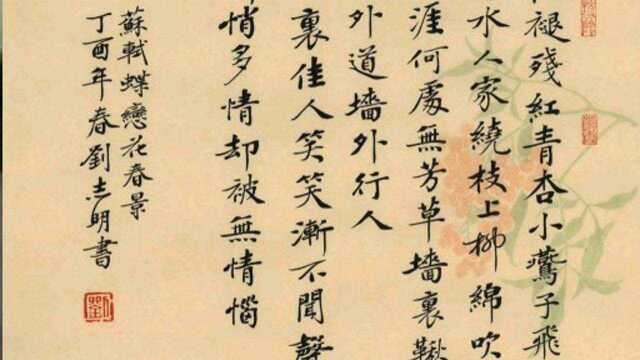 褪殘紅青杏小鷰子飛
水人家繞枝上柳綿吹
涯何處無芳草墻裏鞦
外道墻外行人
裏佳人笑笑漸不聞聲
悄多情却被無情惱
蘇軾蝶戀花春景
丁酉年春劉志明書
劉